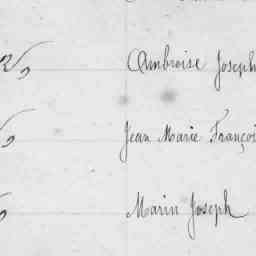 Ambroise Joseph
Jean Marie Françoi
Marin Joseph